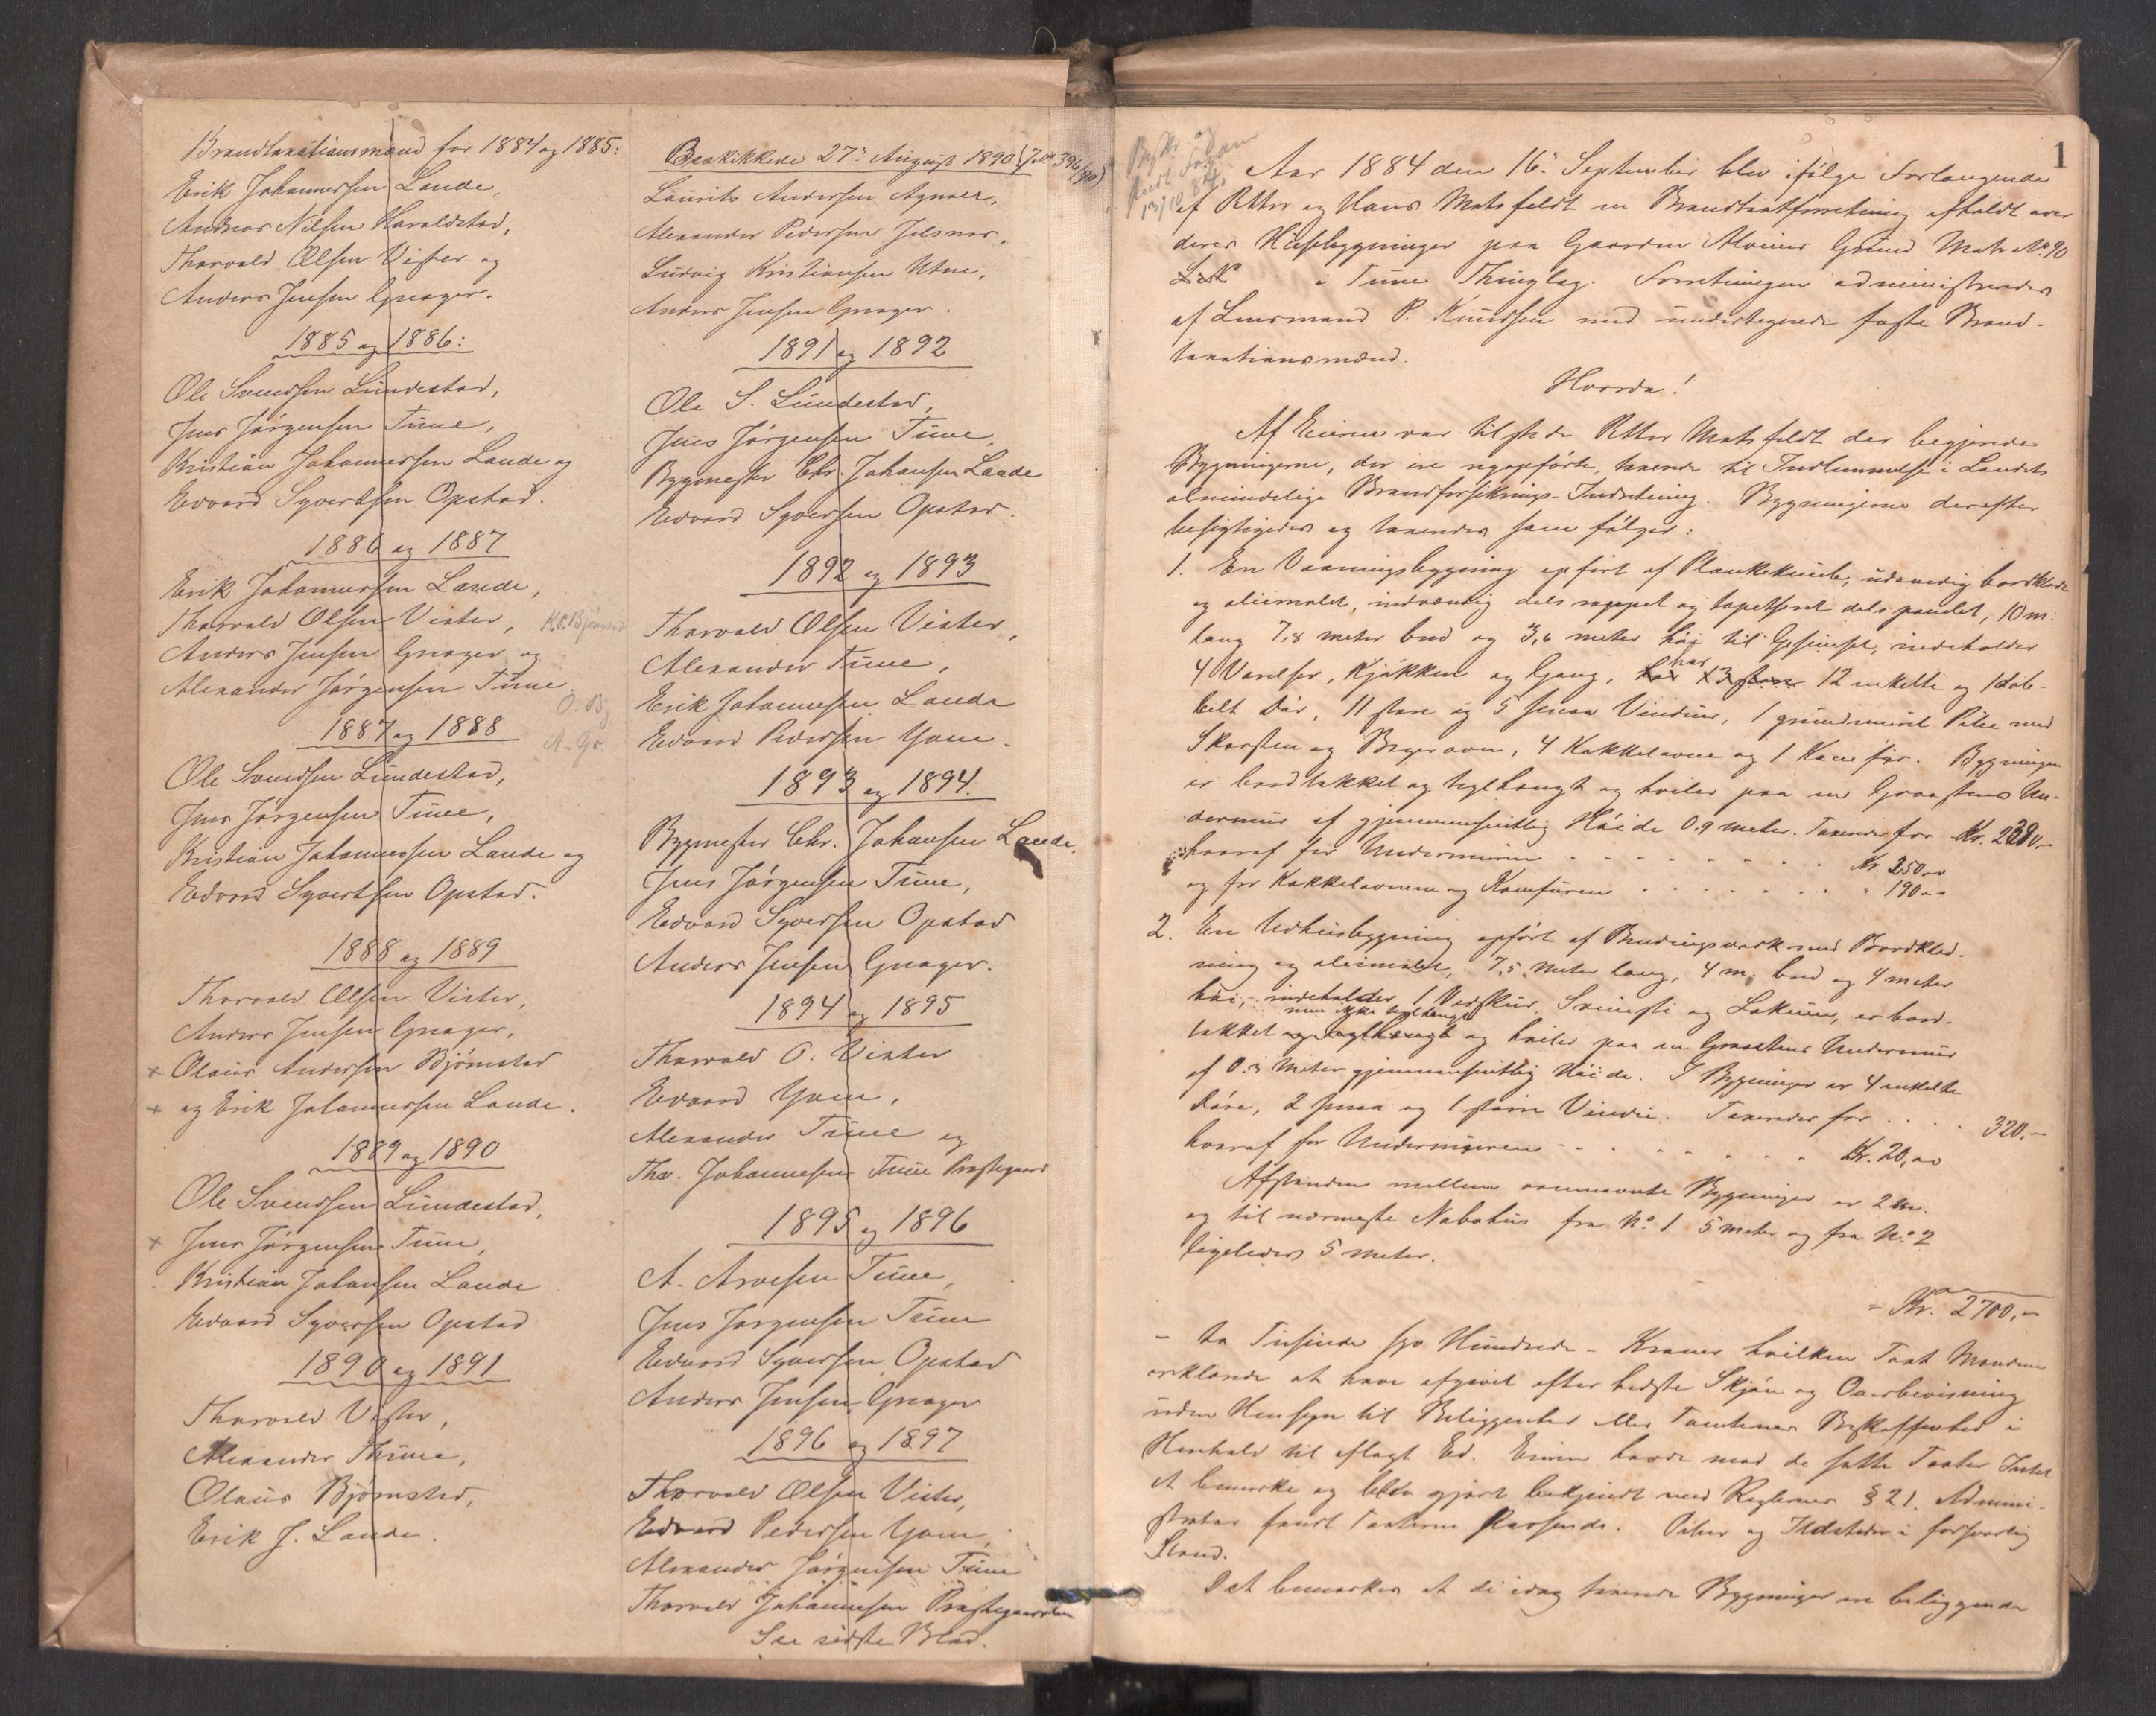 Brandtaxationsmænd for 1884 og 1885:
Erik Johannessen Lande,
Andreas Nilsen Haraldstad,
Thorvald Olsen Vister og
Anders Jensen Gnager.
1885 og 1886:
Ole Svendsen Lundestad,
Jens Jörgensen Tune,
Kristian Johannessen Lande og
Edvard Syvertsen Opstad.
1886 og 1887
Erik Johannessen Lande,
Thorvald Olsen Vister,
Anders Jensen Gnager og
Alexander Jörgensen Tune.
O. Bj
A. Gr.
1887 og 1888
Ole Svendsen Lundestad,
Jens Jörgensen Tune,
Kristian Johannessen Lande og
Edvard Syvertsen Opstad.
1888 og 1889
Thorvald Olsen Vister,
Anders Jensen Gnager,
x Olaus Andersen Bjørnstad
x og Erik Johannessen Lande.
1889 og 1890
Ole Svendsen Lundestad,
x Jens Jörgensen Tune,
Kristian Johansen Lande
Edvard Syversen Opstad
1890 og 1891
Thorvald Vister,
Alexander Thune,
Olaus Bjørnstad,
Erik J. Lande.
Beskikkede 27de August 1890 (J. No 396/90)
Laurits Andersen Agnalt,
Alexander Pedersen Jelsnes,
Ludvig Kristiansen Utne,
Anders Jensen Gnager.
1891 og 1892
Ole S. Lundestad,
Jens Jörgensen Tune,
Bygmester Chr. Johansen Lande
Edvard Syversen Opstad.
1892 og 1893
Thorvald Olsen Vister,
Alexander Tune,
Erik Johannesen Lande
Edvard Pedersen Yven.
1893 og 1894.
Bygmester Chr. Johansen Lande,
Jens Jörgensen Tune,
Edvard Syversen Opstad
Anders Jensen Gnager.
1894 og 1895
Thorvald O. Vister
Edvard Yven,
Alexander Tune og
Thv. Johannesen Tune Prestegaard
1895 og 1896
A. Arvesen Tune,
Jens Jörgensen Tune
Edvard Syversen Opstad
Anders Jensen Gnager
1896 og 1897
Thorvald Olsen Vister,
Edvard Pedersen Yven,
Alexander Jörgensen Tune
Thorvald Johannesen Prestegaarden
See sidste Blad.
1
Aar 1884 den 16de September blev ifölge Forlangende
af Petter og Hans Matsfeldt en Brandtaxtforretning afholdt over
deres Huusbygninger paa Gaarden Alvims Grund Matr No 90
i Tune Thinglag. Forretningen administreredes
af Lensmand P. Knudsen med undertegnede faste Brand-
taxationsmænd.
Hvorda!
Af Eierne var tilstede Petter Matsfeldt der begjærede
Bygningerne, der ere nyopförte, taxerede til Indlemmelse i Landets
almindelige Brandforsikrings-Indretning. Bygningerne derefter
besigtigedes og taxeredes som fölger:
1. En Vaaningsbygning opfört af Plankekubb, udvendig bordklædt
og oliemalet, indvændig dels rappet og tapetseret dels panelet, 10 m.
lang 7,8 meter bred og 3,6 meter höi til Gesimset, indeholder
4 Værelser, Kjökken og Gang, har 12 enkelte og 1 dob-
belt Dör, 11 store og 5 smaa Vinduer, 1 grundmuret Pibe med
Skorsten og Bagerovn, 4 Kakkelovne og 1 Komfur. Bygningen
er bordtakket og teglhængt og hviler paa en Graastens Un-
dermur af gjennemsnitlig Höide 0.9 meter. Taxeredes for Kr. 2380.-
hvoraf for Undermuren Kr. 250,00
og for Kakkelovnene og Komfuren " 190,00
2. En Udhusbygning opfört af Bindingsværk med Bordklæd-
ning og oliemalet, 7,5 meter lang, 4 m. bred og 4 meter
höi, indeholder 1 Vedskur, Svinesti og Lokum, er bord-
men ikke teglhængt
takket og teglhængt og hviler paa en Graastens Undermur
af 0.3 meter gjennemsnitlig Höide. I Bygningen er 4 enkelte
Döre, 2 smaa og 1 större Vindu. Taxeredes for 320,-
hvoraf for Undermuren Kr. 20,00
Afstanden mellem ovennævnte Bygninger er 2 m.
og til nærmeste Nabohus fra No 1 5 meter og fra No 2
ligeledes 5 meter.
Kr. 2700,-
- to Tusinde syv Hundrede - Kroner hvilken Taxt Mændene
erklærede at have afgivet efter bedste Skjön og Overbevisning
uden Hensyn til Beliggenhed eller Tomtenes Beskaffenhed i
Henhold til aflagt Ed. Eieren havde mod de satte Taxter Intet
at bemærke og blev gjort bekjendt med Reglernes § 21. Admini-
strator fandt Taxterne passende. Piber og Ildsteder i forsvarlig
Stand.
Det bemærkes at de idag taxerede Bygninger ere beliggende